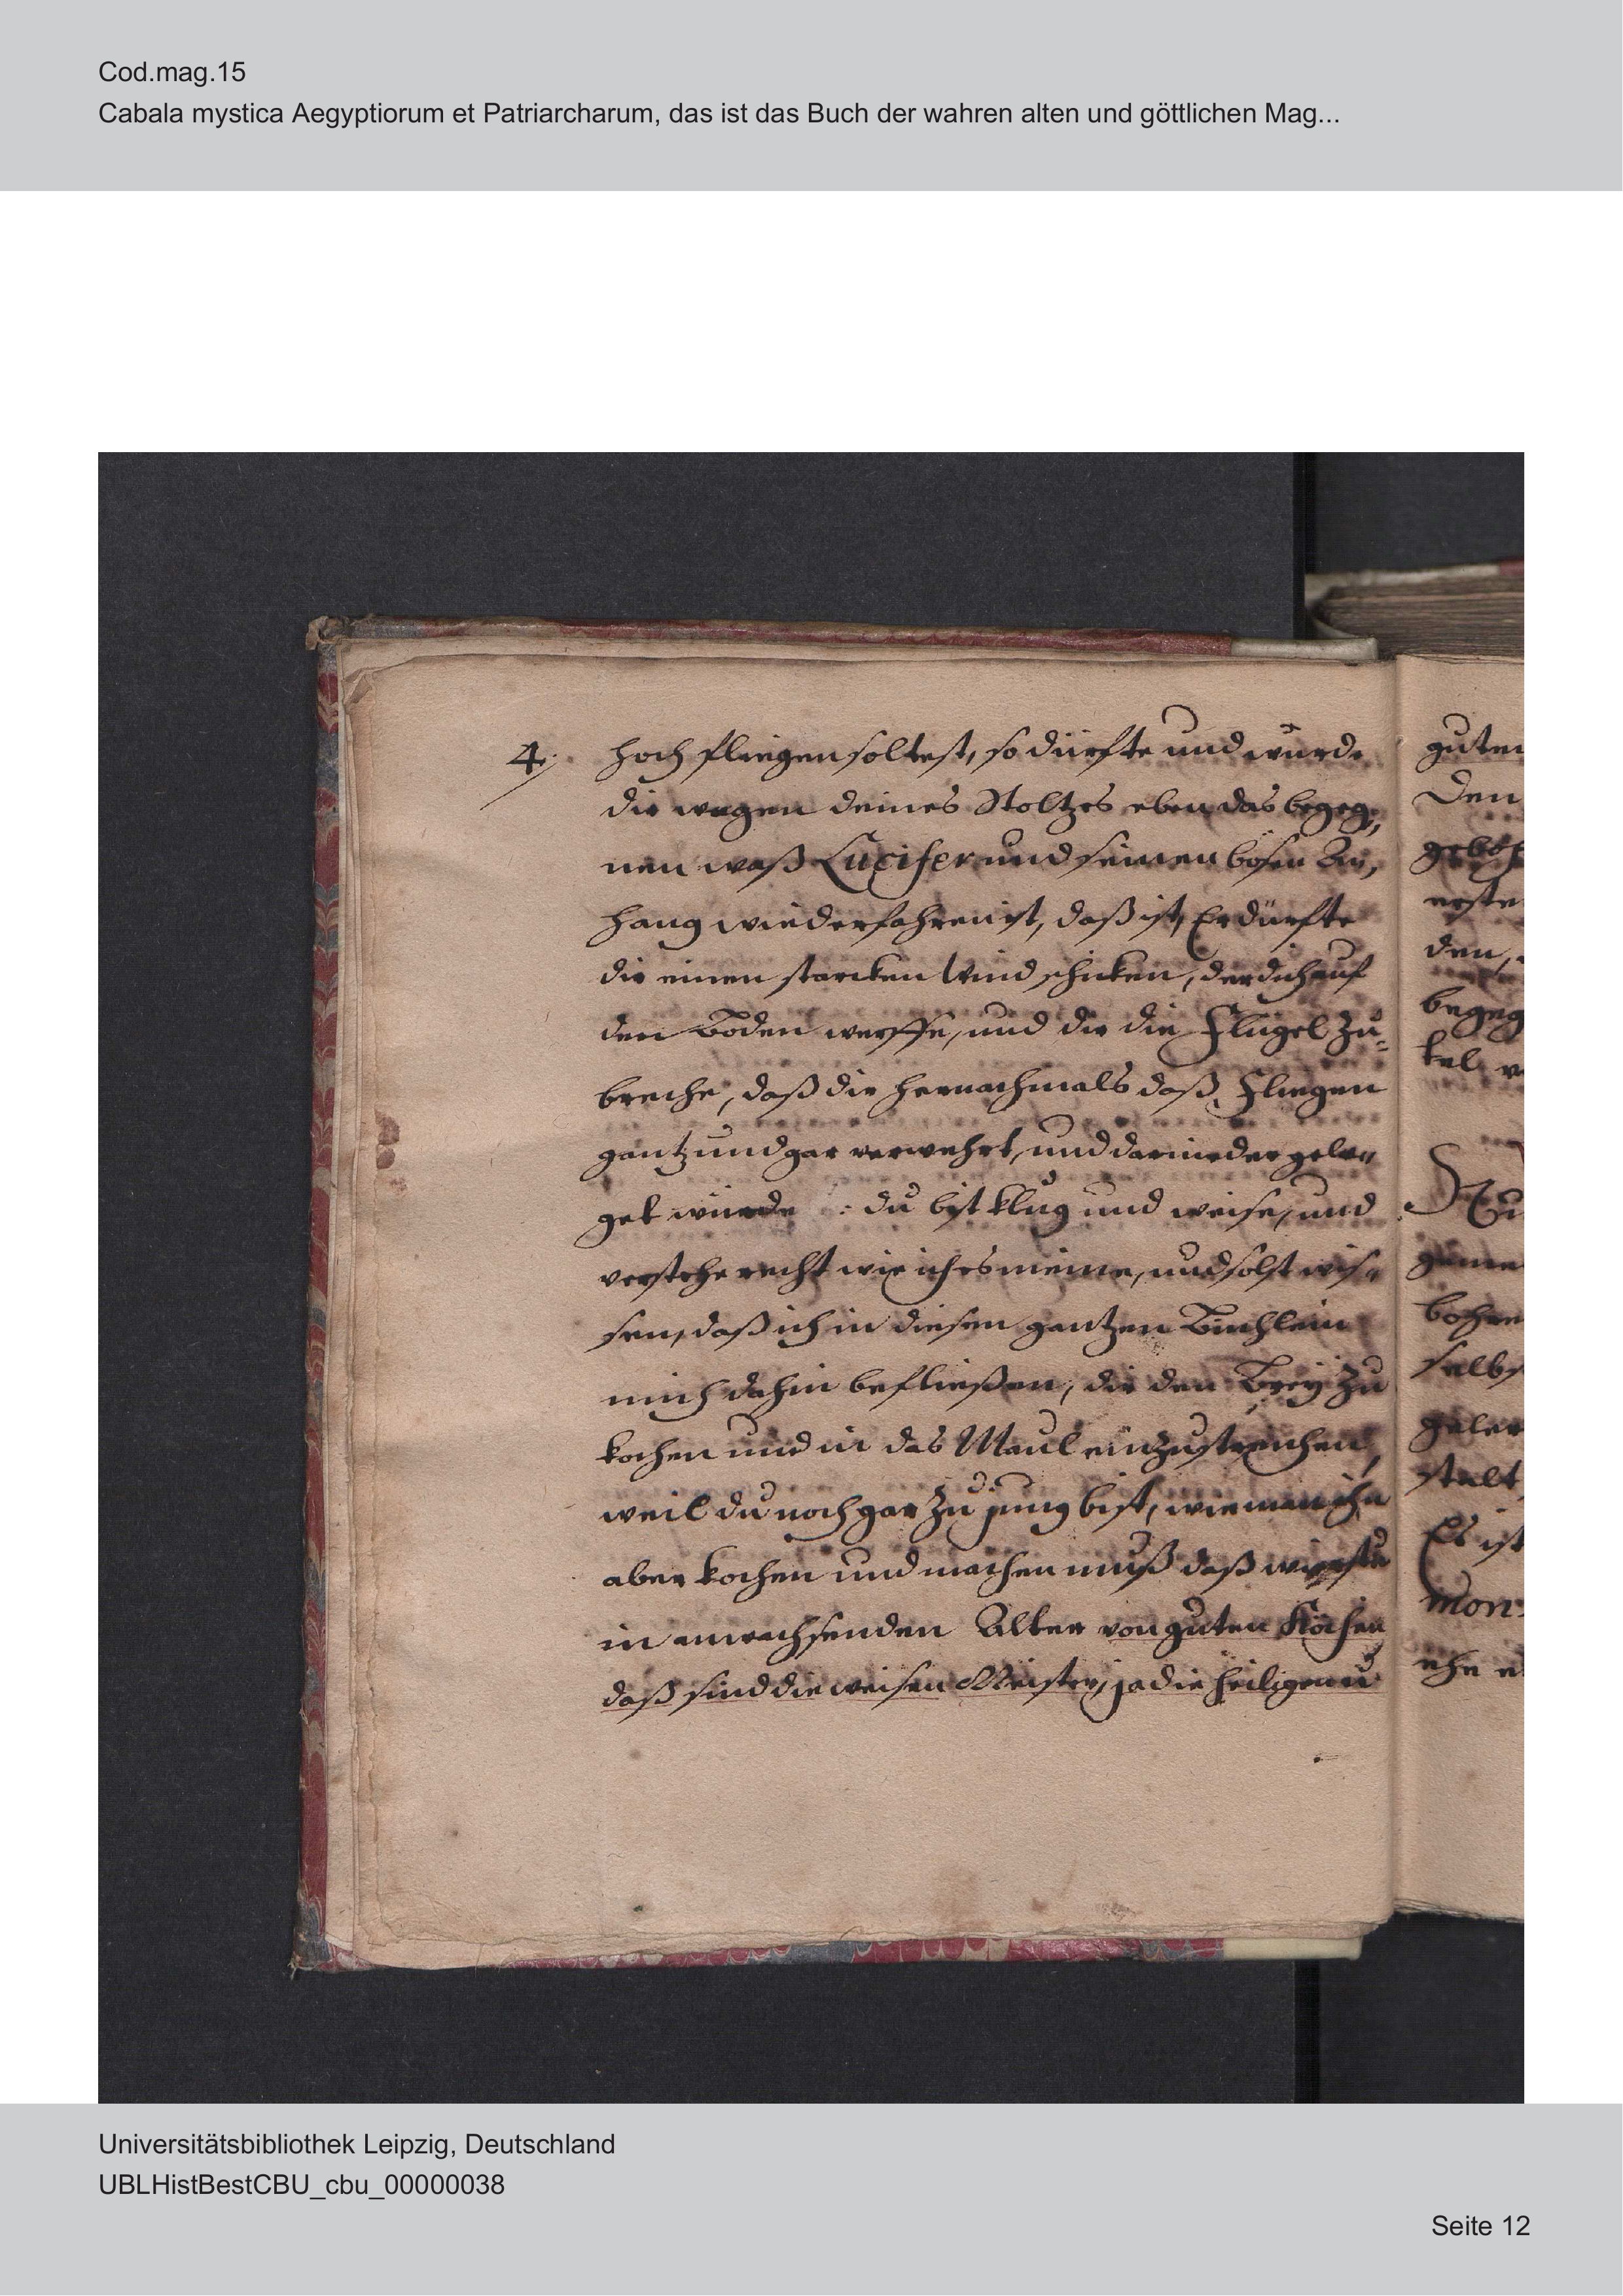 Cod.mag.15
Cabala mystica Aegyptiorum et Patriarcharum, das ist das Buch der wahren alten und göttlichen Mag...
4. hoch fliegen soltest, so dürfte und würde
dir wegen deines Stoltzes eben das begeg,
nen waß Lucifer und seinen bösen An,
hang wiederfahren ist, daß ist, Er dürfte
dir einen starcken Wind schicken, der dich auf
den Boden werffe, und dir die Flügel zu-
breche, daß dir hernachmals daß Fliegen
gantz und gar verwehrt, und darnieder gele„
get würde : du bist klug und weise, und
verstehe recht wie ich es meine, und solst wis„
sen, daß ich in diesen gantzen Büchlein
mich dahin befließen, dir den Breÿ zu
kochen und in das Maul einzustreichen,
weil du noch gar zu jung bist, wie man ihn
aber kochen und machen muß daß wirstu
in anwachsenden Alter von guten Köchen
daß sind die weisen Meister, ja die heiligen u
guten
Den
erste
den,
begeg
kel
bohre
selbs
stalt
Es ist
mon
Universitätsbibliothek Leipzig, Deutschland
UBLHistBestCBU_cbu_00000038
Seite 12